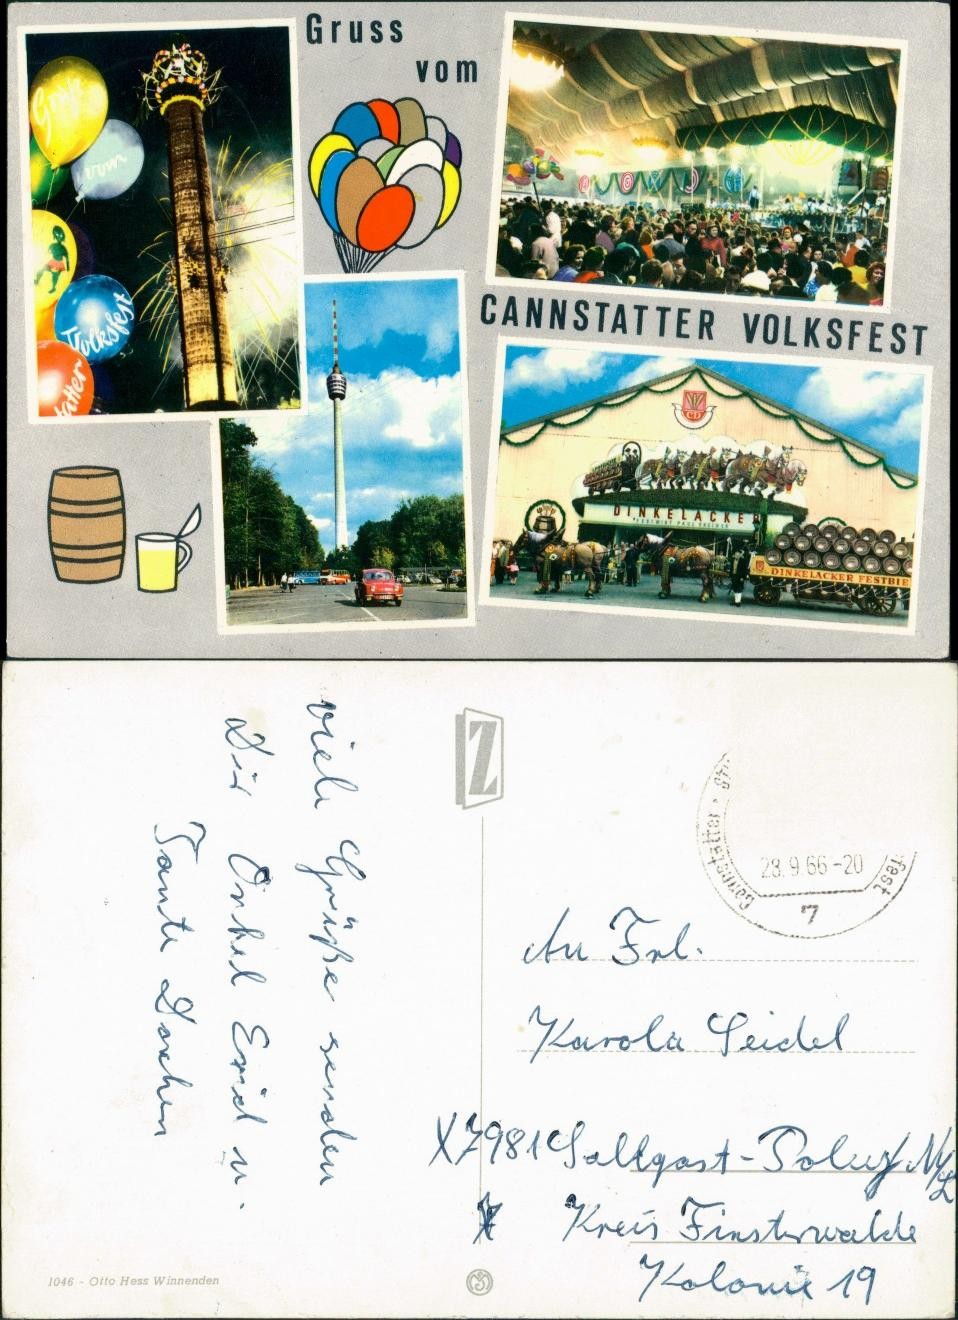 Gruss
vom
CANNSTATTER VOLKSFEST
Gruß
vom
Volksfest
tatter
CD
DINKELACKER
FESTWIRT PAUL GREINER
DINKELACKER FESTBIE
viele Grüße senden
Dir Onkel Erich u.
Tante Dorchen
Z
Cannstatter
fest
28.9.66-20
7
An Frl.
Karola Seidel
X7981 Sallgast-Poley N/L
Kreis Finsterwalde
Kolonie 19
1046 - Otto Hess Winnenden